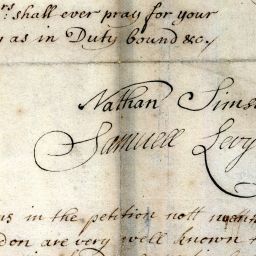 rs: shall ever pray for your
as in Duty bound &c
Nathan Sims
Samuell Levy
in the petition nott
don are very well known